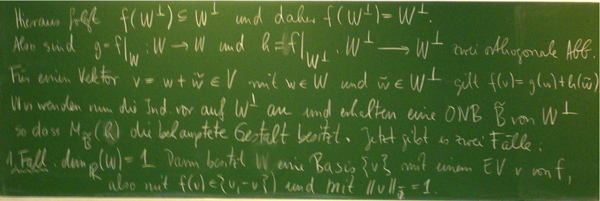 Hieraus folgt f(W^⊥) ⊆ W^⊥ und daher f(W^⊥) = W^⊥.
Also sind g = f|_W : W → W und h = f|_{W^⊥} : W^⊥ → W^⊥ zwei orthogonale Abb.
Für einen Vektor v = w + w̃ ∈ V mit w ∈ W und w̃ ∈ W^⊥ gilt f(v) = g(w) + h(w̃)
Wir wenden nun die Ind. vor auf W^⊥ an und erhalten eine ONB B̃ von W^⊥
so dass M_B̃(h) die behauptete Gestalt besitzt. Jetzt gibt es zwei Fälle:
1. Fall: dim_ℝ(W) = 1 Dann besitzt W eine Basis {v} mit einem EV v von f,
also mit f(v) ∈ {v, -v}) und mit ||v|| = 1.